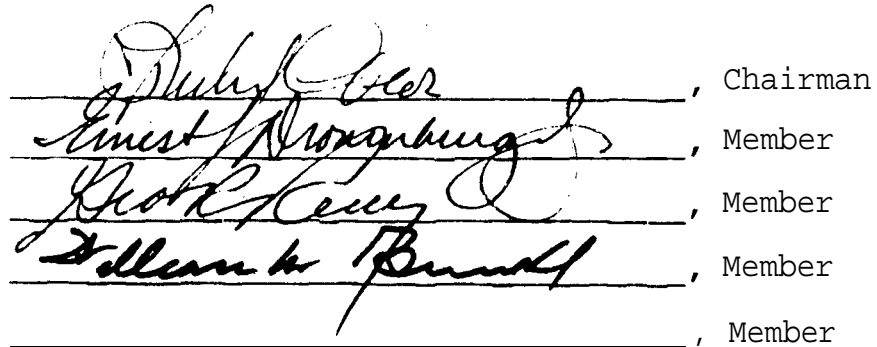 , Chairman
Ernest J Dronenburg Jr , Member
Geo R Reilly , Member
William M Bennett , Member
, Member